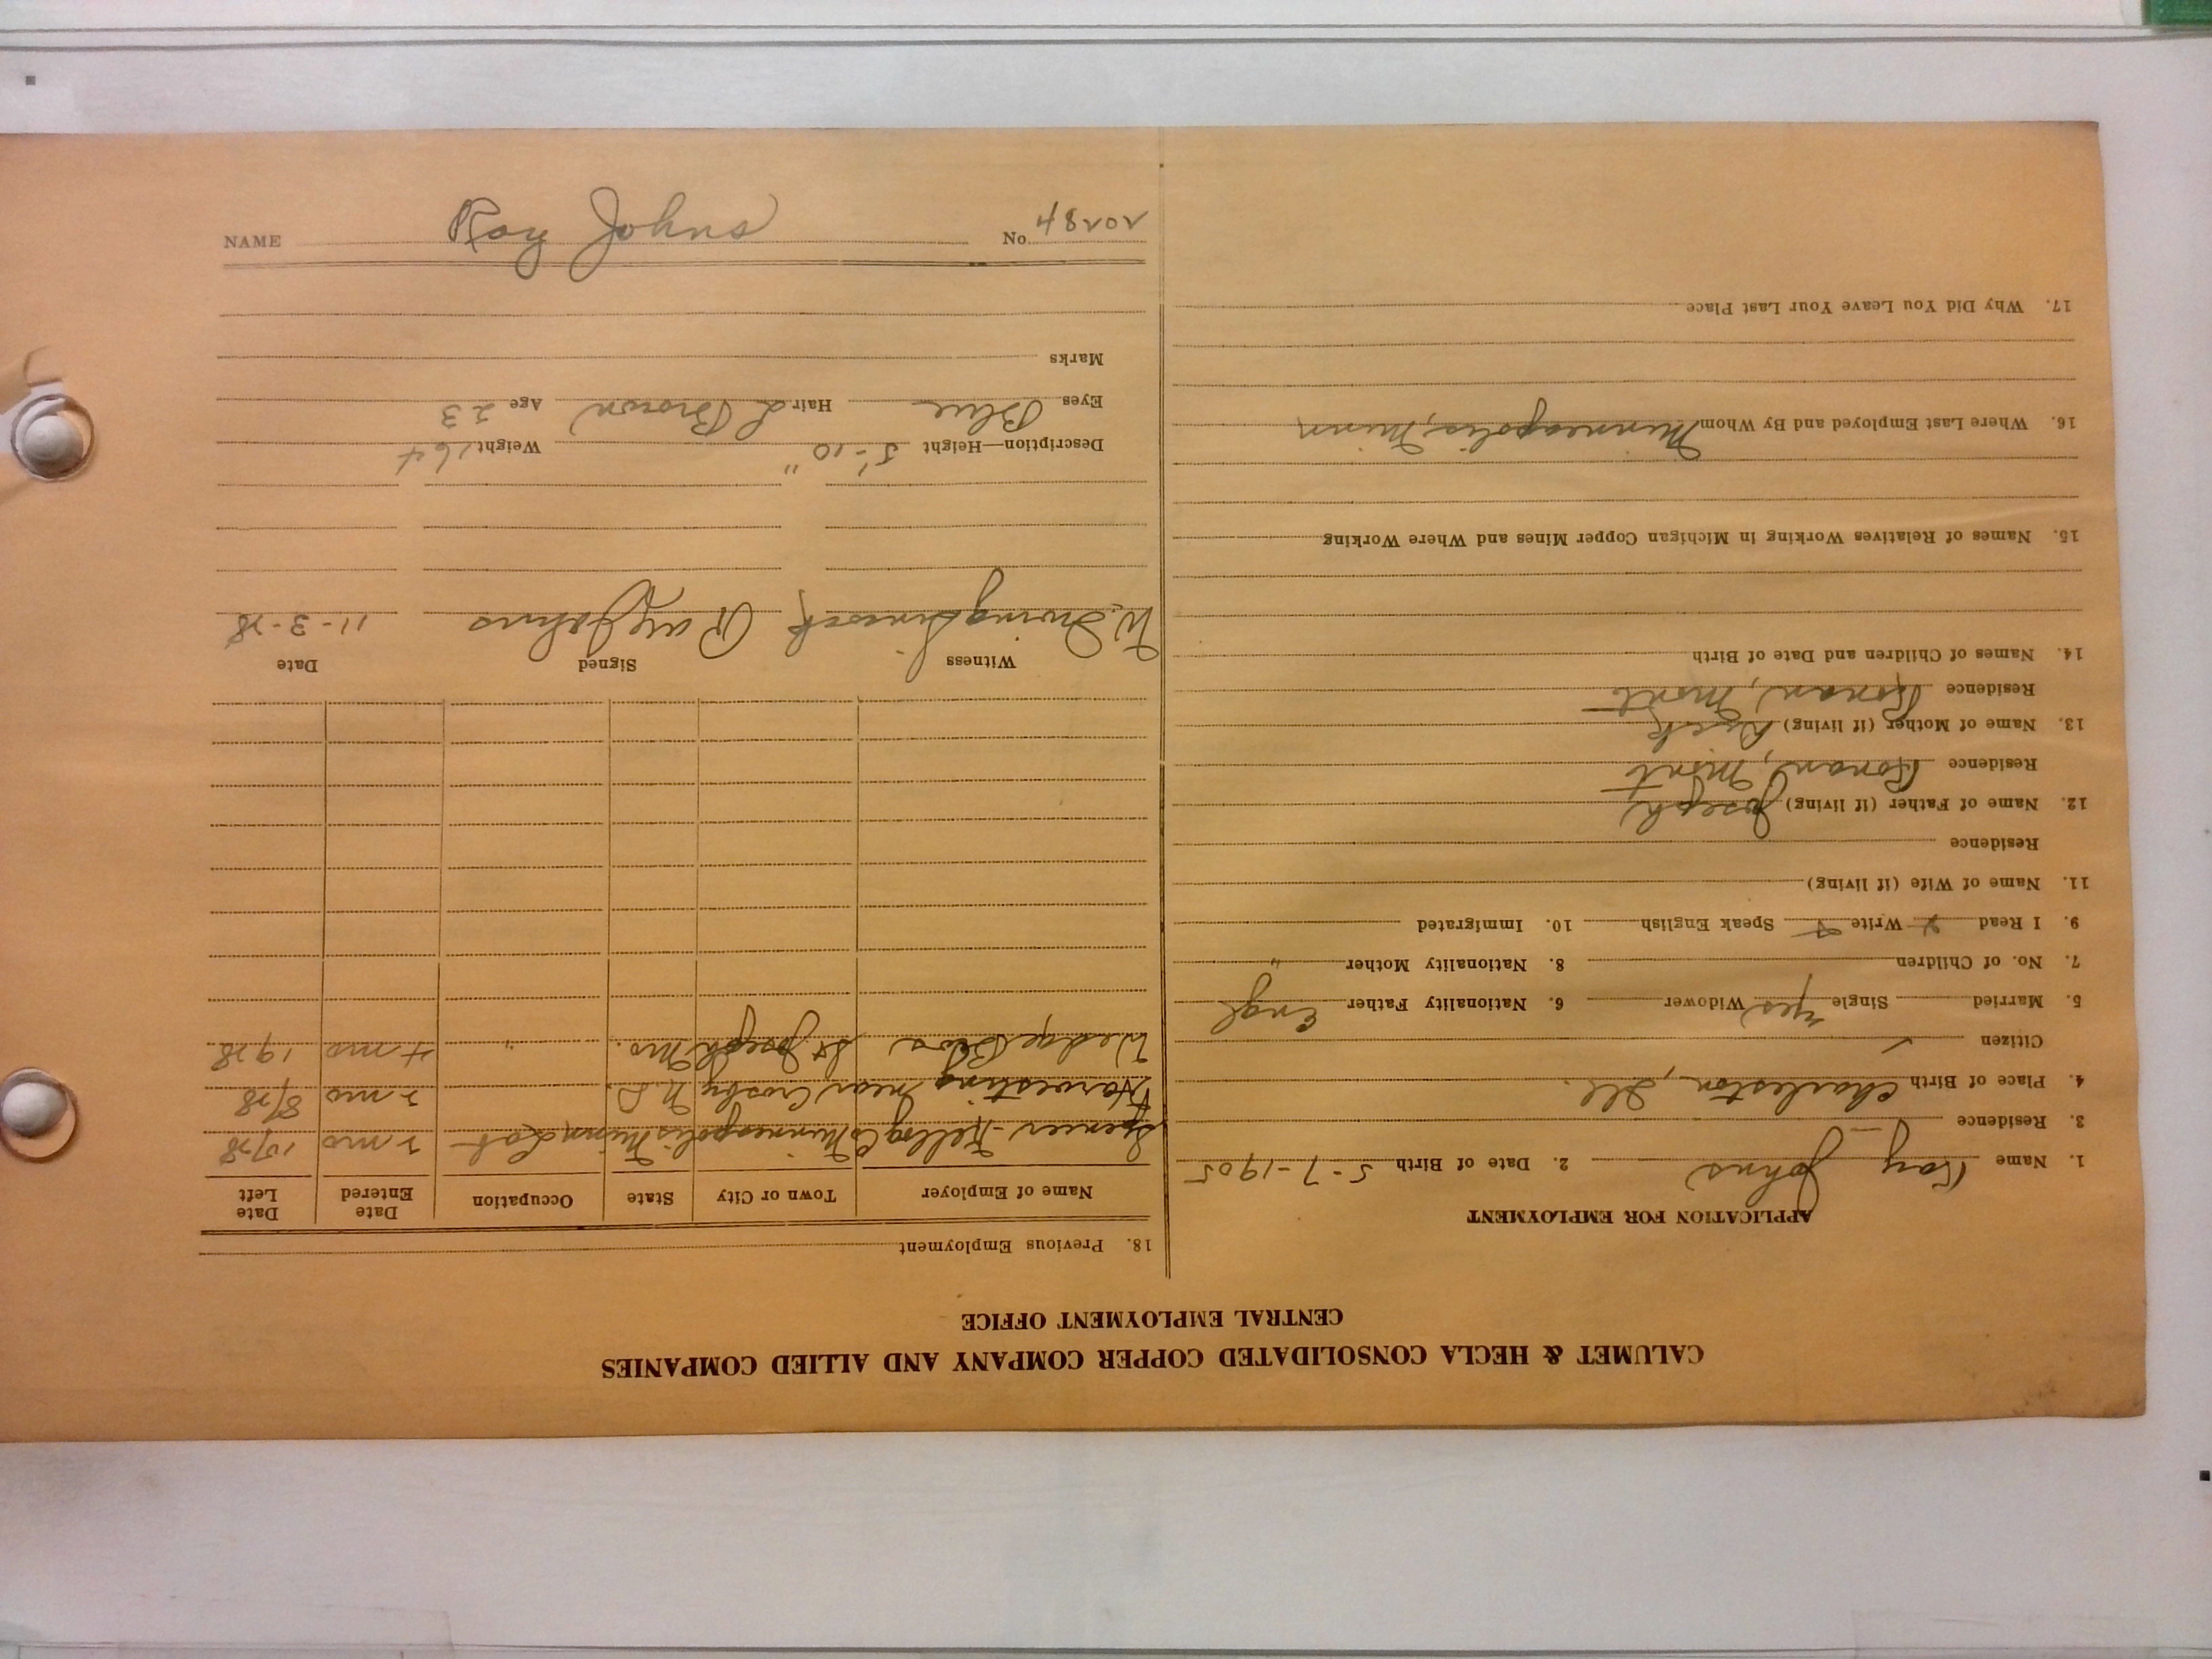 CALUMET & HECLA CONSOLIDATED COPPER COMPANY AND ALLIED COMPANIES
CENTRAL EMPLOYMENT OFFICE
APPLICATION FOR EMPLOYMENT
1. Name Ray Johns 2. Date of Birth 5-7-1905
3. Residence
4. Place of Birth Charleston, Ill.
Citizen ✓
5. Married Single Yes Widower 6. Nationality Father Engl
7. No. of Children 8. Nationality Mother "
9. I Read Write Speak English 10. Immigrated
11. Name of Wife (if living)
Residence
12. Name of Father (if living) Joseph
Residence Ronan, Mont
13. Name of Mother (if living)
Residence Ronan, Mont
14. Names of Children and Date of Birth
15. Names of Relatives Working in Michigan Copper Mines and Where Working
16. Where Last Employed and By Whom Minneapolis, Minn
17. Why Did You Leave Your Last Place
18. Previous Employment
Name of Employer Town or City State Occupation Date Entered Date Left
Spencer-Kellog Co Minneapolis Minn Lab 2 mo 10/28
Harvesting near Crosby N.D. 2 mo 8/28
Wedge Bros St Joseph Mo. " 4 mo 1928
Witness Signed Date
W. Irving Ray Johns 11-3-28
Description—Height 5'-10" Weight 164
Eyes Blue Hair L Brown Age 23
Marks
NAME Ray Johns No. 48202